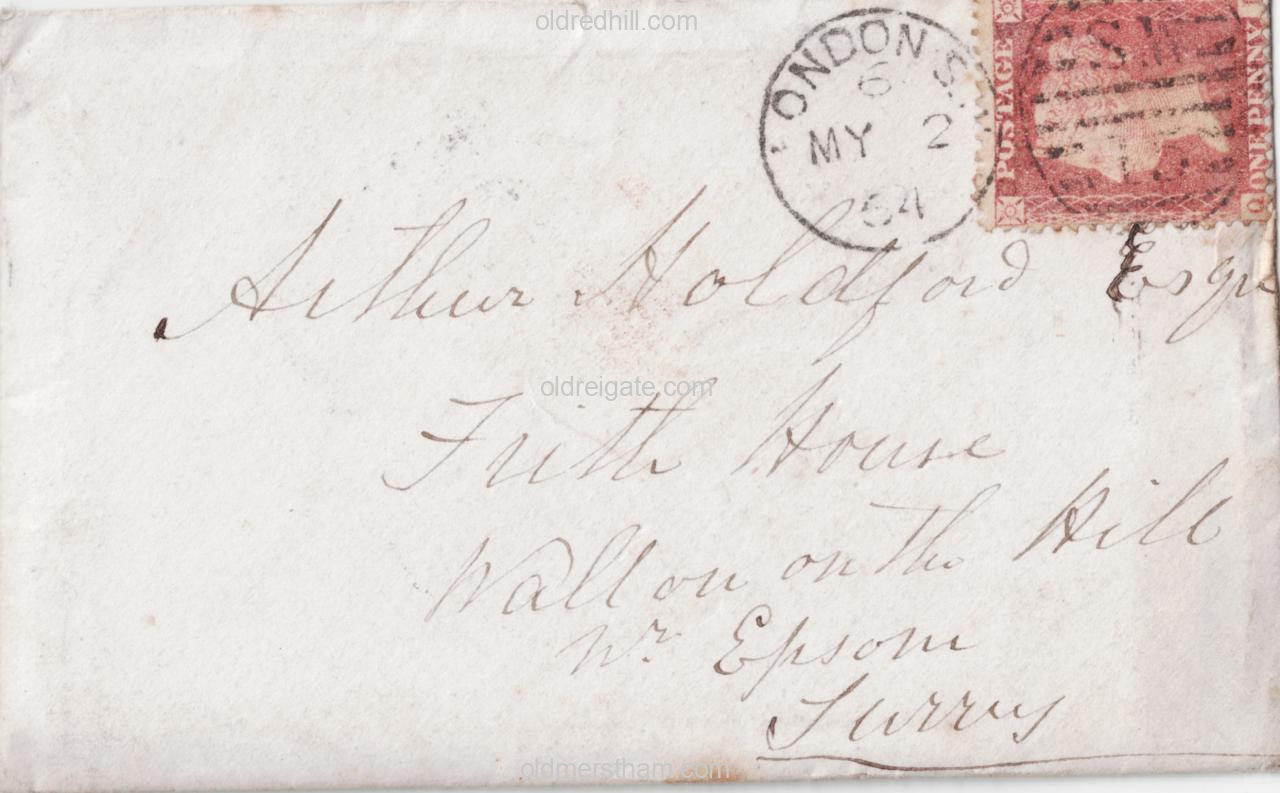 oldredhill.com
LONDON S.W
6
MY 2
54
POSTAGE
ONE PENNY
S.W
Arthur Holdford Esqre
oldreigate.com
Frith House
Walton on the Hill
Nr. Epsom
Surrey
oldmerstham.com